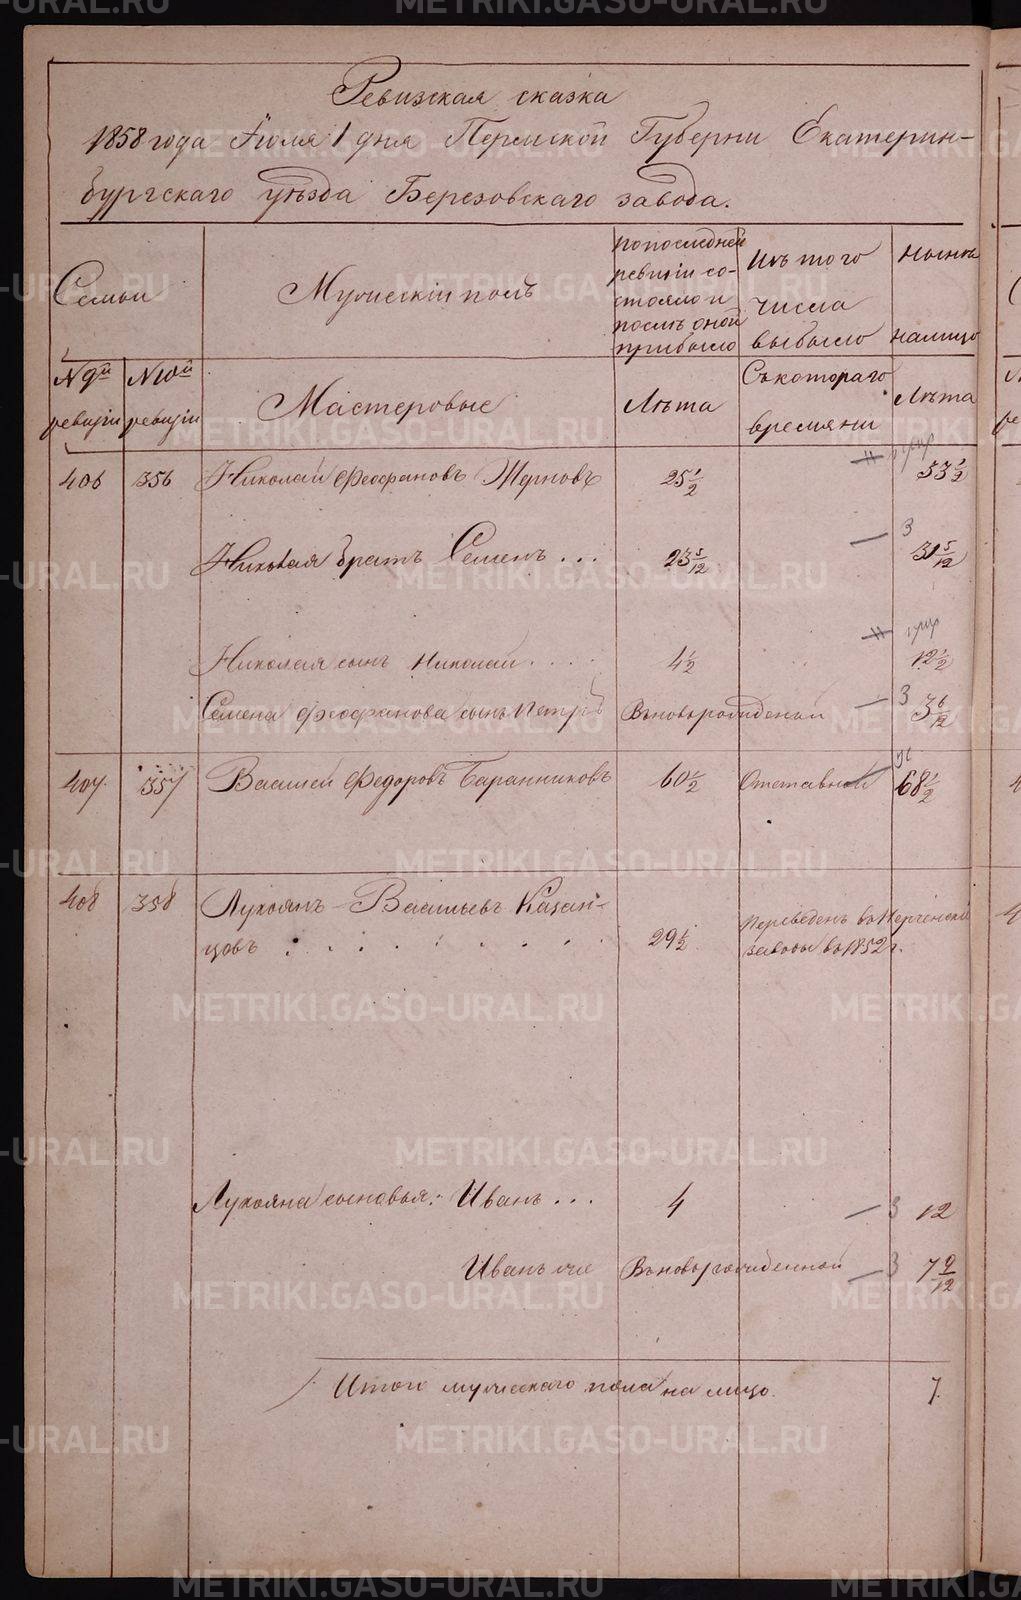 Ревизская сказка
1858 года Іюля 1 дня Пермской Губерни Екатерин-
бургскаго уѣзда Березовскаго завода.
Семьи
Мужескій полъ
по последней ревизіи состояло и послѣ оной прибыло
Изъ того числа выбыло
Нынѣ налицо
№ 9й ревизіи
№ 10й ревизіи
Мастеровые
Лѣта
Съ котораго времяни
Лѣта
406 356 Николай Феофановъ Жерновъ 25 1/2 33 1/2
Николая братъ Семенъ . . . 23 5/12 3 31 5/12
Николая сынъ Николай . . . . 4 1/2 12 1/2
Семена Феофанова сынъ Петръ Вновьрожденой 3 3 6/12
407. 357 Василей Федоровъ Баранниковъ 60 1/2 Отставной 68 1/2
408 358 Лукоянъ Васильевъ Казан-
цовъ : . . . . . . . 29 1/2 Переведенъ во Нерченскі
заводы во 1852 г.
Лукояна сыновья: Иванъ . . . 4 3 12
Иванъ же Вновьрожденной 3 7 9/12
Итого мужескаго пола на лицо. 7.
METRIKI.GASO-URAL.RU